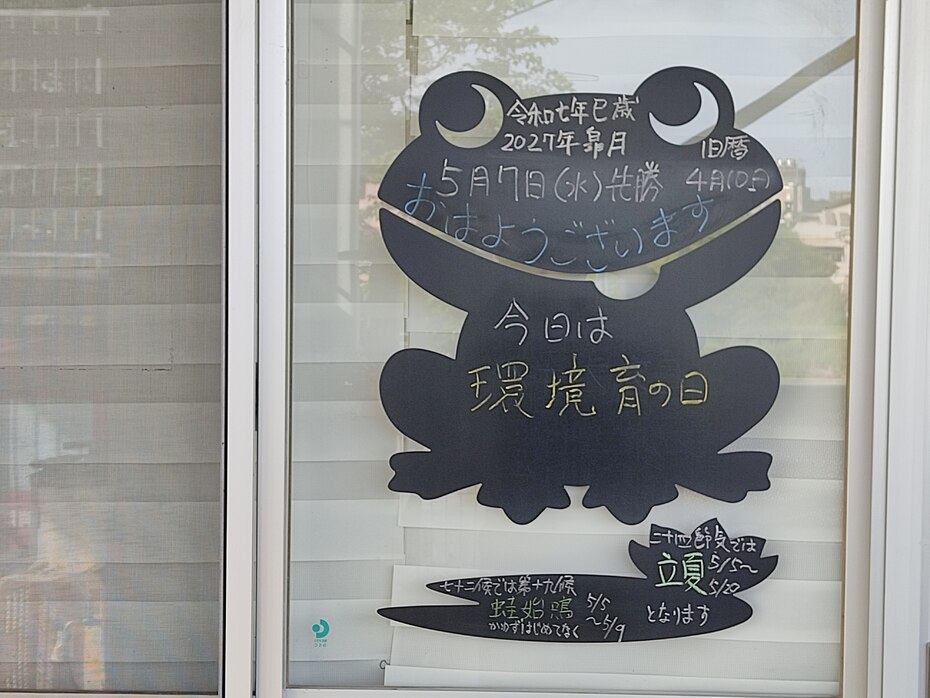 令和七年巳歳
2027年皐月
旧暦
5月7日(水)先勝 4月10日
おはようございます
今日は
環境育の日
二十四節気では
立夏 5/5~
5/20
となります
七十二候では第十九候
蛙始鳴 5/5
~5/9
かわずはじめてなく